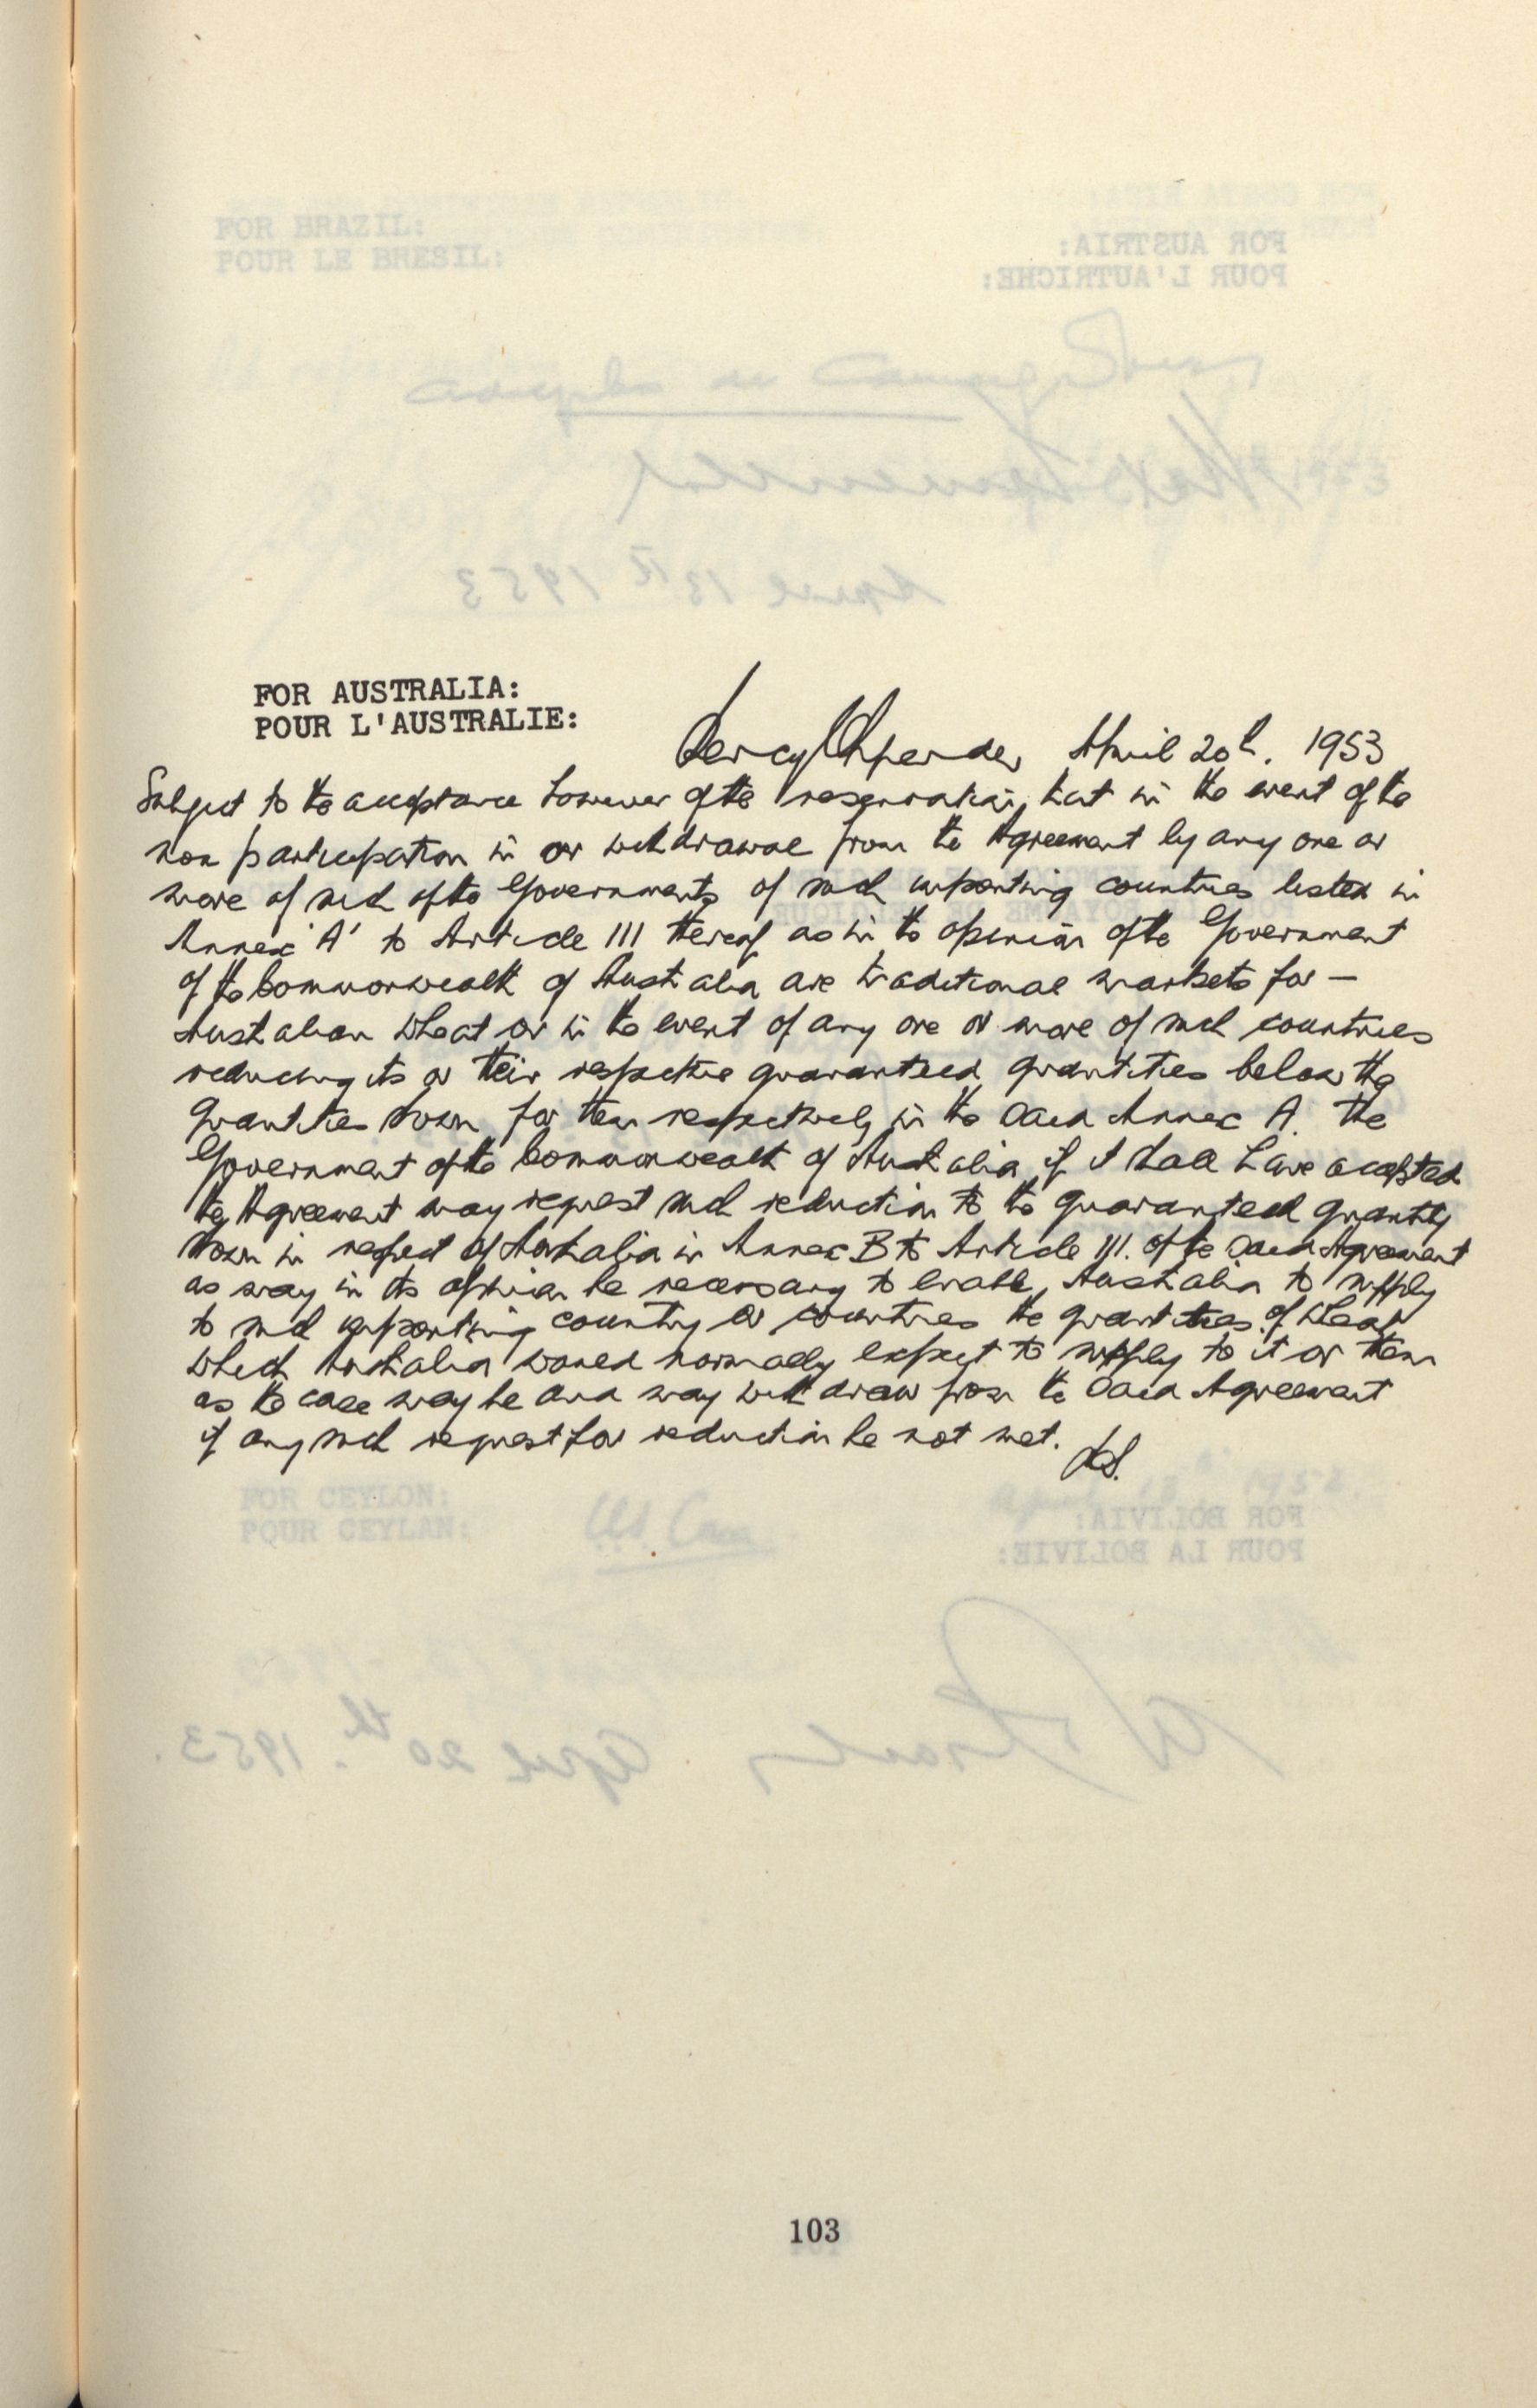 FOR AUSTRALIA:
POUR L'AUSTRALIE:
Percy C Spender April 20th. 1953
Subject to the acceptance however of the reservation, that in the event of the
non participation in or withdrawal from the Agreement by any one or
more of such of the Governments of such importing countries listed in
Annex 'A' to Article III thereof as in the opinion of the Government
of the Commonwealth of Australia are traditional markets for —
Australian wheat or in the event of any one or more of such countries
reducing its or their respective guaranteed quantities below the
quantities shown for them respectively in the said Annex A. the
Government of the Commonwealth of Australia if it shall have accepted
the Agreement may request such reduction to the guaranteed quantity
shown in respect of Australia in Annex B to Article III. of the said Agreement
as may in its opinion be necessary to enable Australia to supply
to such importing country or countries the quantities of wheat
which Australia would normally expect to supply to it or them
as the case may be and may withdraw from the said Agreement
if any such request for reduction be not met. PCS.
FOR BRAZIL:
POUR LE BRESIL:
FOR AUSTRIA:
POUR L'AUTRICHE:
April 13th 1953
FOR CEYLON:
POUR CEYLAN:
FOR BOLIVIA:
POUR LA BOLIVIE:
April 20th. 1953.
103